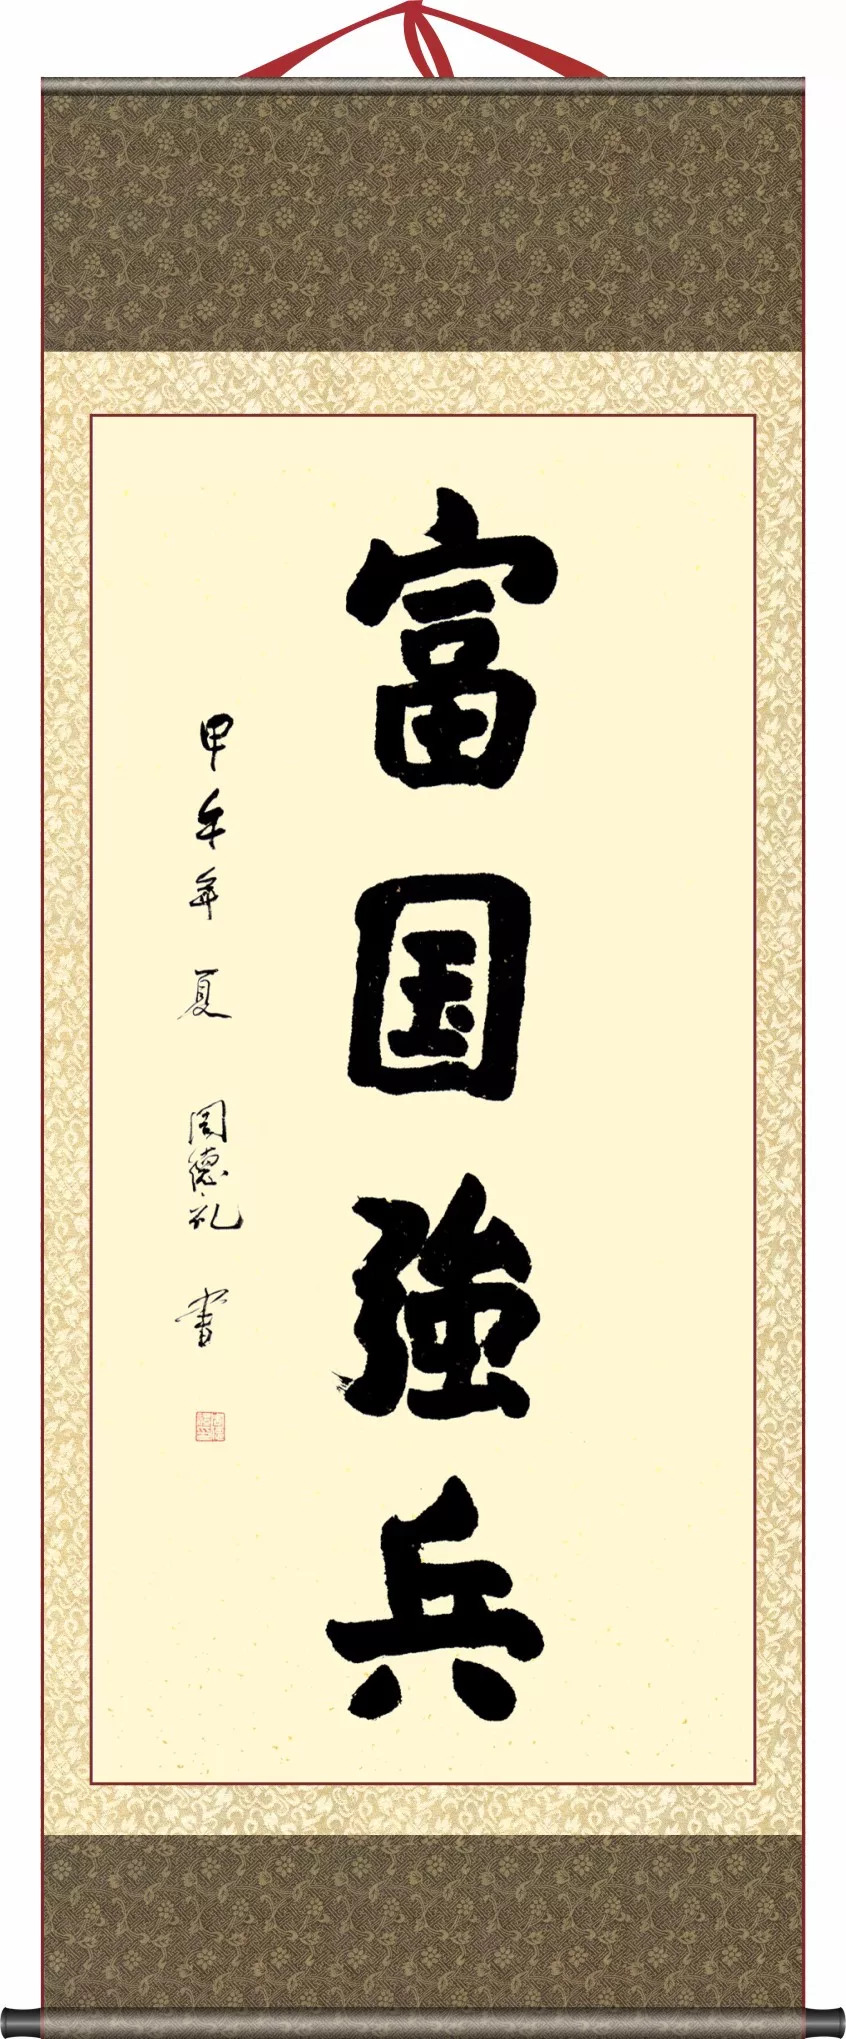 富国強兵
甲午年夏 周德礼 书